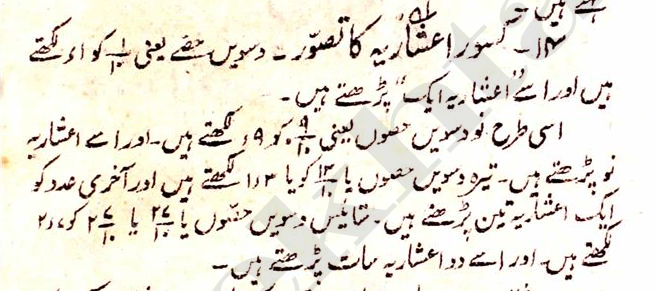 ہیں۔
۱۳۔ کسور اعشاریہ کا تصوّر۔ دسویں حصّے یعنی ۱/۱۰ کو ۱ء لکھتے
ہیں اور اسے "اعشاریہ ایک" پڑھتے ہیں۔
اسی طرح نو دسویں حصوں یعنی ۹/۱۰ کو ۹ء لکھتے ہیں۔ اور اسے اعشاریہ
نو پڑھتے ہیں۔ تیرہ دسویں حصوں یا ۱۳/۱۰ کو یا ۱ء۳ لکھتے ہیں اور آخری عدد کو
ایک اعشاریہ تین پڑھتے ہیں۔ ستائیس دسویں حصّوں یا ۲۷/۱۰ یا ۲ ۷/۱۰ کو ۲ء۷
لکھتے ہیں۔ اور اسے دو اعشاریہ سات پڑھتے ہیں۔